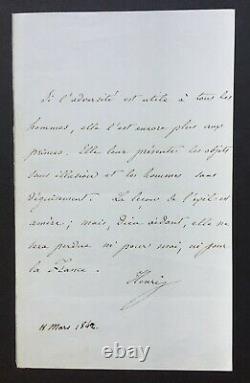 Si l'adversité est utile à tous les
hommes, elle l'est encore plus aux
princes. Elle leur présente les objets
sans illusion et les hommes sans
déguisement. La leçon de l'exil est
amère; mais, Dieu aidant, elle ne
sera perdue ni pour moi, ni pour
la France.
Henri
11 Mars 1842.
ebay